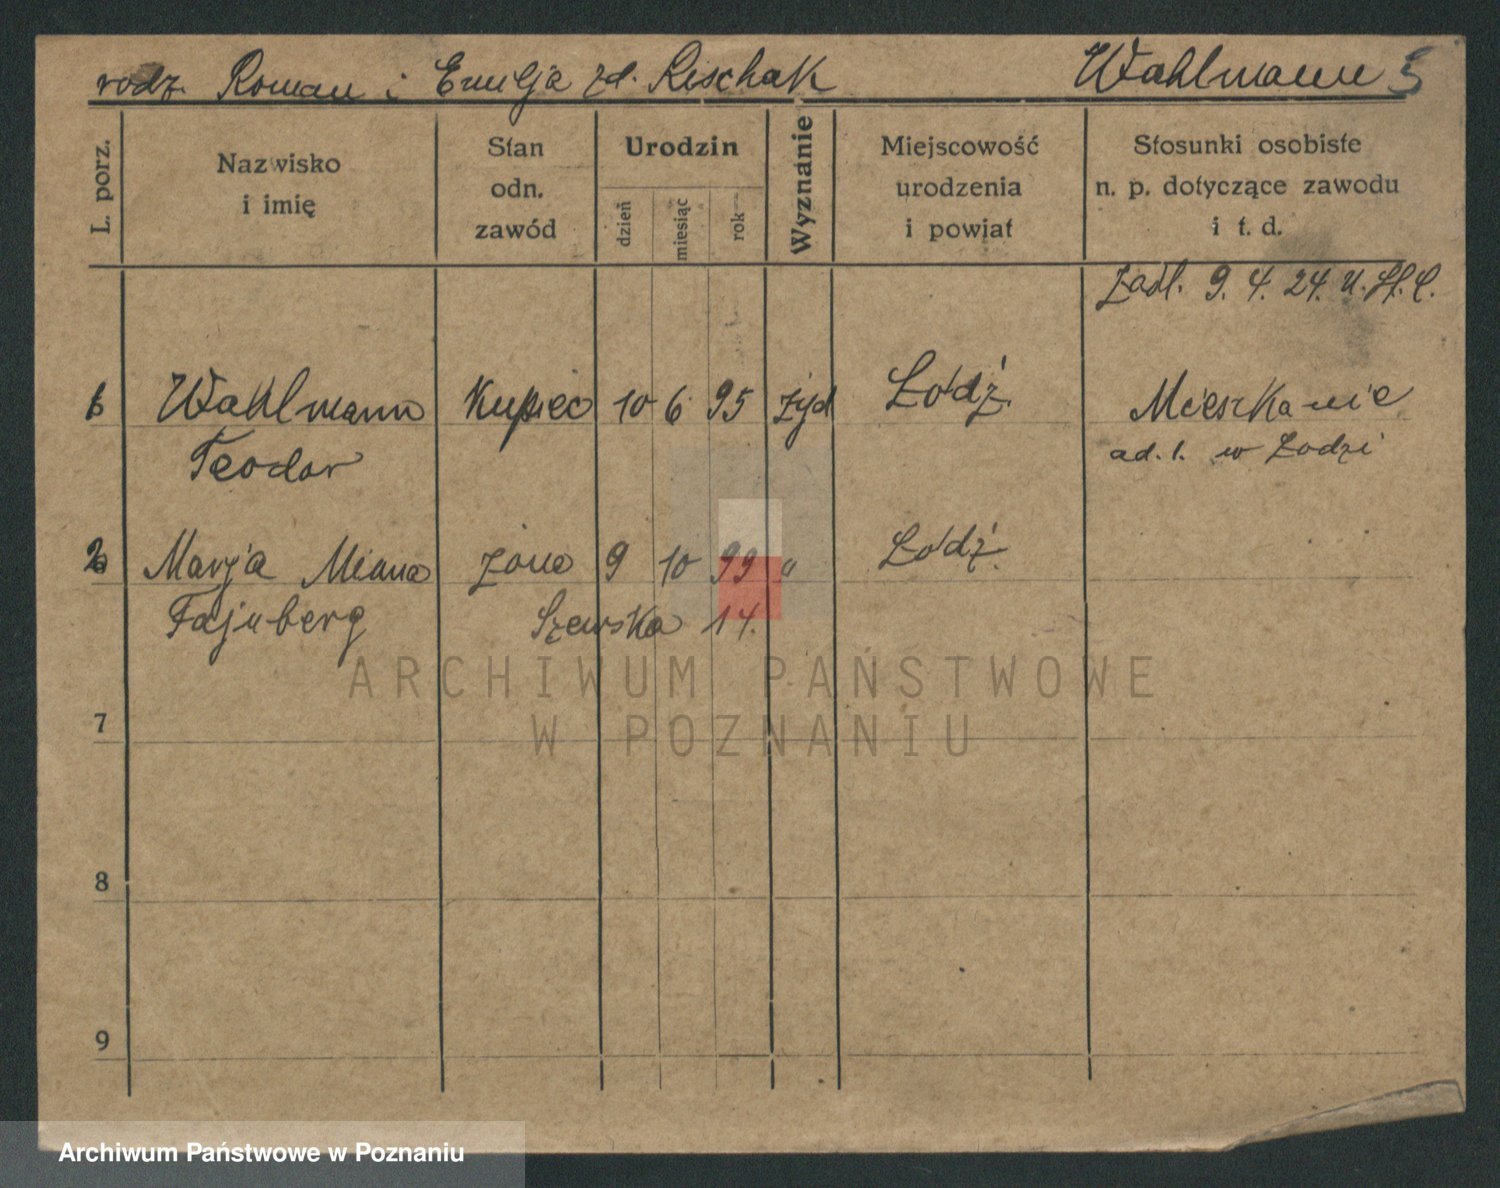 rodz. Roman i Emilja zd. Rischak Wahlmann
L. porz.
Nazwisko i imię
Stan odn. zawód
Urodzin
dzień miesiąc rok
Wyznanie
Miejscowość urodzenia i powiat
Stosunki osobiste n. p. dotyczące zawodu i t. d.
9. 4. 24.
1 Wahlmann Kupiec 10 6 95 żyd Łódź Mieszkanie
Teodor ad. 1. w Łodzi
2 Marja żona 9 10 99 " Łódź
Fajnberg Szewska 14.
ARCHIWUM PAŃSTWOWE
W POZNANIU
7
8
9
Archiwum Państwowe w Poznaniu